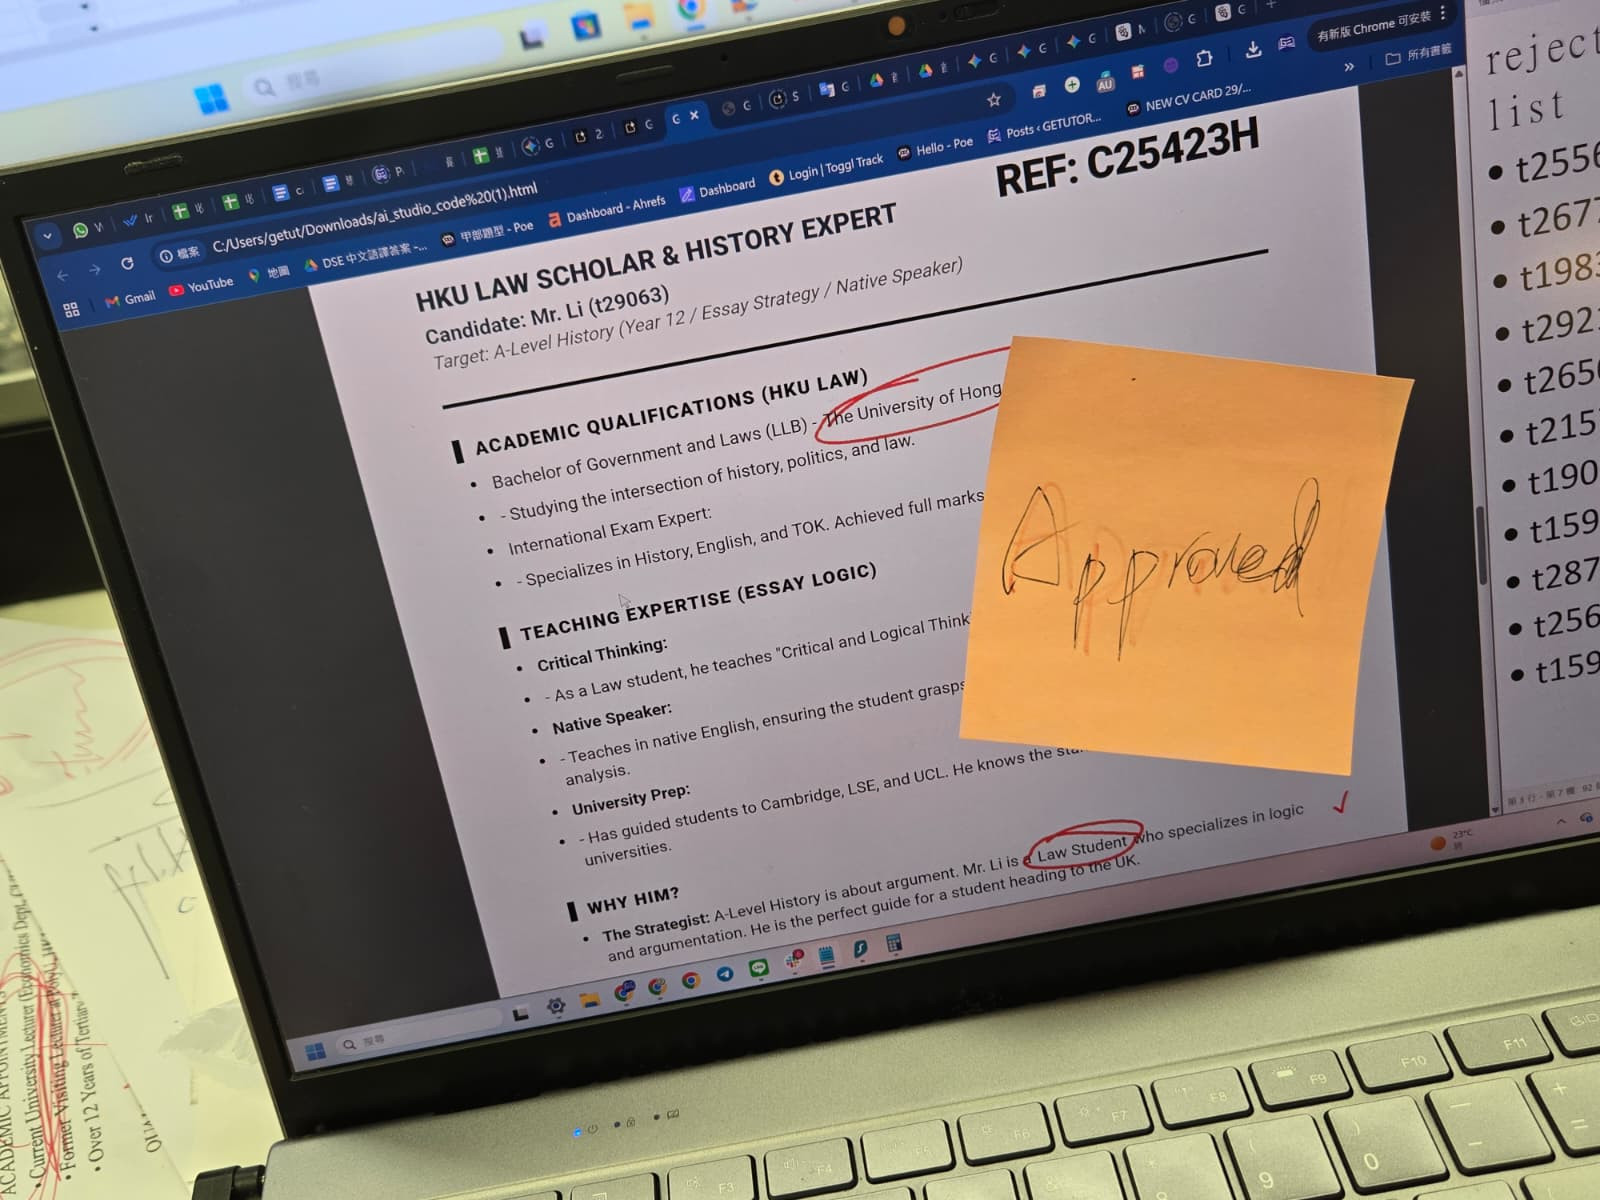 搜尋
有新版 Chrome 可安裝
C:/Users/getut/Downloads/ai_studio_code%20(1).html
檔案
所有書籤
Gmail
YouTube
地圖
DSE 中文語譯答案 -...
甲部題型 - Poe
Dashboard - Ahrefs
Dashboard
Login | Toggl Track
Hello - Poe
Posts ‹ GETUTOR...
NEW CV CARD 29/...
REF: C25423H
HKU LAW SCHOLAR & HISTORY EXPERT
Candidate: Mr. Li (t29063)
Target: A-Level History (Year 12 / Essay Strategy / Native Speaker)
ACADEMIC QUALIFICATIONS (HKU LAW)
• Bachelor of Government and Laws (LLB) - The University of Hong
• - Studying the intersection of history, politics, and law.
• International Exam Expert:
• - Specializes in History, English, and TOK. Achieved full marks
TEACHING EXPERTISE (ESSAY LOGIC)
• Critical Thinking:
• - As a Law student, he teaches "Critical and Logical Think
• Native Speaker:
• - Teaches in native English, ensuring the student grasps
analysis.
• University Prep:
• - Has guided students to Cambridge, LSE, and UCL. He knows the
universities.
WHY HIM?
• The Strategist: A-Level History is about argument. Mr. Li is a Law Student who specializes in logic
and argumentation. He is the perfect guide for a student heading to the UK.
Approved
reject
list
• t2556
• t2677
• t1983
• t292
• t265
• t215
• t190
• t159
• t287
• t256
• t159
23°C
搜尋
ACADEMIC APPOINTMENTS
• Current University Lecturer (Economics Dept,
• Former Visiting Lecturer at
• Over 12 Years of Tertiary
F3
F4
F5
F6
F7
F8
F9
F10
F11
9
0